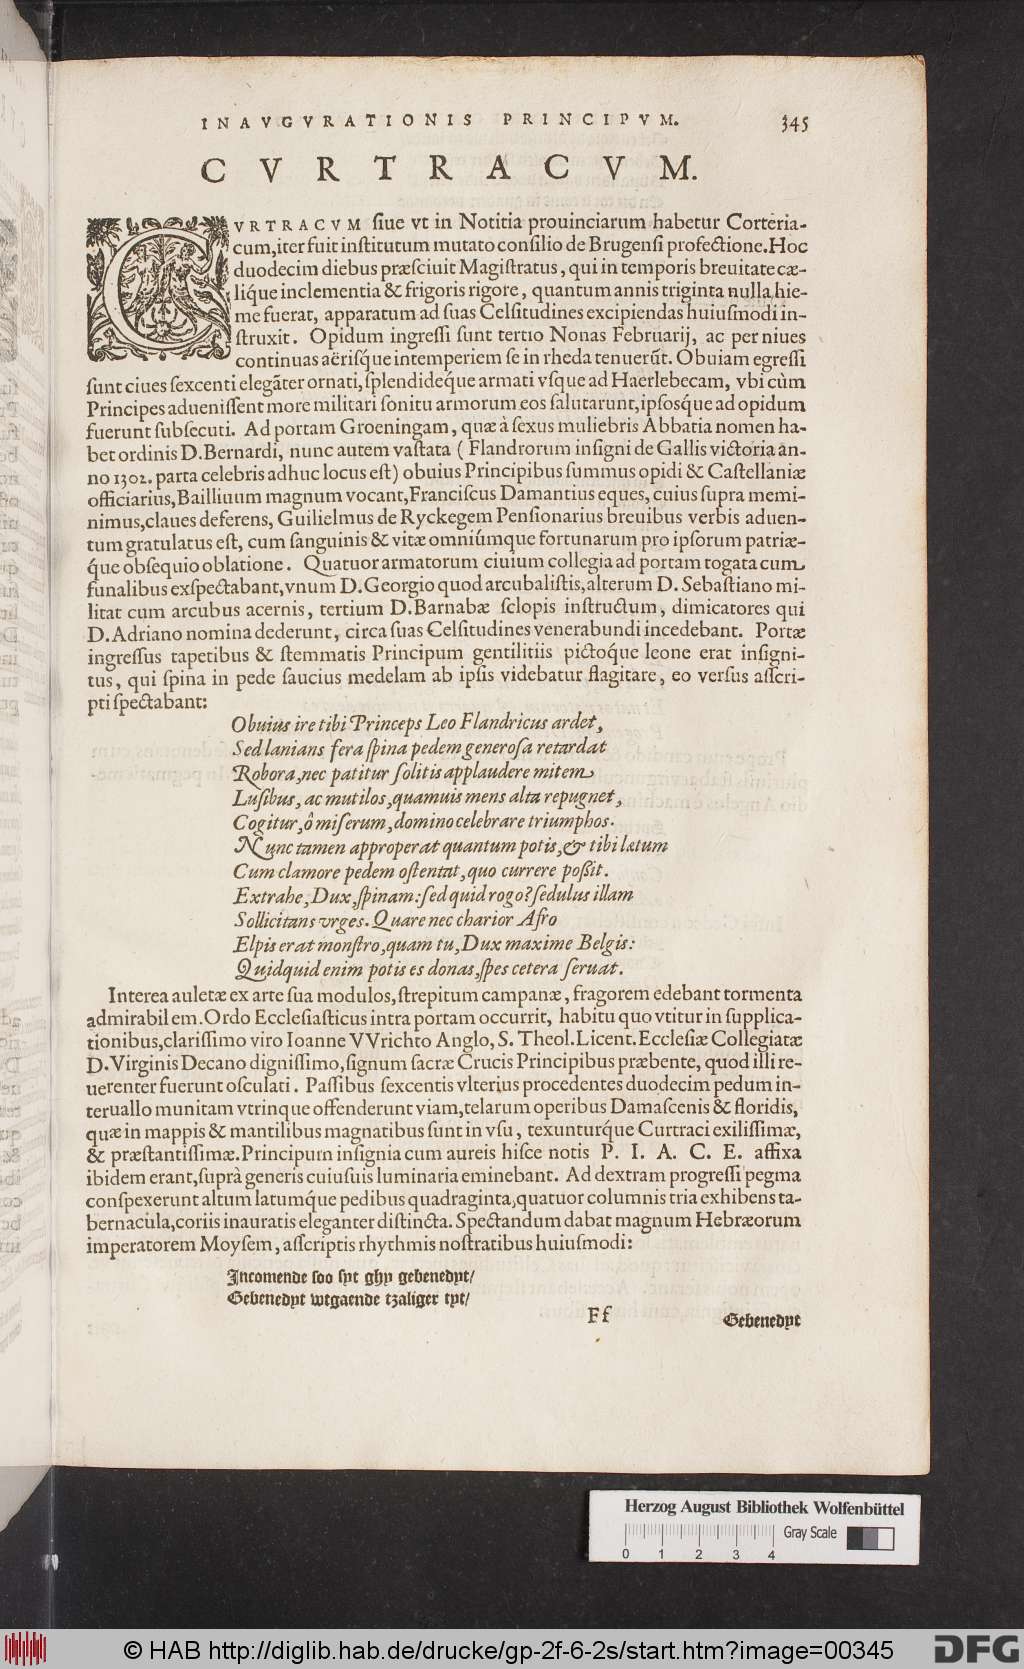 INAVGVRATIONIS PRINCIPVM. 345
CVRTRACVM.
CVRTRACVM ſiue vt in Notitia prouinciarum habetur Corteria-
cum, iter fuit inſtitutum mutato conſilio de Brugenſi profectione. Hoc
duodecim diebus præſciuit Magiſtratus, qui in temporis breuitate cæ-
liq́ue inclementia & frigoris rigore, quantum annis triginta nulla hie-
me fuerat, apparatum ad ſuas Celſitudines excipiendas huiuſmodi in-
ſtruxit. Opidum ingreſſi ſunt tertio Nonas Februarij, ac per niues
continuas aëriſq́ue intemperiem ſe in rheda tenuerūt. Obuiam egreſſi
ſunt ciues ſexcenti elegāter ornati, ſplendideq́ue armati vſque ad Haerlebecam, vbi cùm
Principes adueniſſent more militari ſonitu armorum eos ſalutarunt, ipſosq́ue ad opidum
fuerunt ſubſecuti. Ad portam Groeningam, quæ à ſexus muliebris Abbatia nomen ha-
bet ordinis D. Bernardi, nunc autem vaſtata ( Flandrorum inſigni de Gallis victoria an-
no 1302. parta celebris adhuc locus eſt) obuius Principibus ſummus opidi & Caſtellaniæ
officiarius, Bailliuum magnum vocant, Franciſcus Damantius eques, cuius ſupra memi-
nimus, claues deferens, Guilielmus de Ryckegem Penſionarius breuibus verbis aduen-
tum gratulatus eſt, cum ſanguinis & vitæ omniúmque fortunarum pro ipſorum patriæ-
q́ue obſequio oblatione. Quatuor armatorum ciuium collegia ad portam togata cum
funalibus exſpectabant, vnum D. Georgio quod arcubaliſtis, alterum D. Sebaſtiano mi-
litat cum arcubus acernis, tertium D. Barnabæ ſclopis inſtructum, dimicatores qui
D. Adriano nomina dederunt, circa ſuas Celſitudines venerabundi incedebant. Portæ
ingreſſus tapetibus & ſtemmatis Principum gentilitiis pictoq́ue leone erat inſigni-
tus, qui ſpina in pede ſaucius medelam ab ipſis videbatur flagitare, eo verſus aſſcri-
pti ſpectabant:
Obuius ire tibi Princeps Leo Flandricus ardet,
Sed lanians fera ſpina pedem generoſa retardat
Robora, nec patitur ſolitis applaudere mitem
Luſibus, ac mutilos, quamuis mens alta repugnet,
Cogitur, ô miſerum, domino celebrare triumphos.
Nunc tamen approperat quantum potis, & tibi lætum
Cum clamore pedem oſtentat, quo currere poßit.
Extrahe, Dux, ſpinam: ſed quid rogo? ſedulus illam
Sollicitans vrges. Quare nec charior Afro
Elpis erat monſtro, quam tu, Dux maxime Belgis:
Quidquid enim potis es donas, ſpes cetera ſeruat.
Interea auletæ ex arte ſua modulos, ſtrepitum campanæ, fragorem edebant tormenta
admirabilem. Ordo Eccleſiaſticus intra portam occurrit, habitu quo vtitur in ſupplica-
tionibus, clariſſimo viro Ioanne VVrichto Anglo, S. Theol. Licent. Eccleſiæ Collegiatæ
D. Virginis Decano digniſſimo, ſignum ſacræ Crucis Principibus præbente, quod illi re-
uerenter fuerunt oſculati. Paſſibus ſexcentis vlterius procedentes duodecim pedum in-
teruallo munitam vtrinque offenderunt viam, telarum operibus Damaſcenis & floridis,
quæ in mappis & mantilibus magnatibus ſunt in vſu, texunturq́ue Curtraci exiliſſimæ,
& præſtantiſſimæ. Principum inſignia cum aureis hiſce notis P. I. A. C. E. affixa
ibidem erant, ſuprà generis cuiuſuis luminaria eminebant. Ad dextram progreſſi pegma
conſpexerunt altum latumq́ue pedibus quadraginta, quatuor columnis tria exhibens ta-
bernacula, coriis inauratis eleganter diſtincta. Spectandum dabat magnum Hebræorum
imperatorem Moyſem, aſſcriptis rhythmis noſtratibus huiuſmodi:
Incomende ſoo ſyt ghy gebenedyt/
Gebenedyt wtgaende tzaliger tyt/
Ff Gebenedyt
Herzog August Bibliothek Wolfenbüttel
Gray Scale
0 1 2 3 4
© HAB http://diglib.hab.de/drucke/gp-2f-6-2s/start.htm?image=00345 DFG